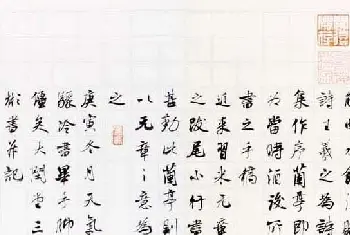 詩王羲之為詩
集作序蘭亭即
為當時酒後所
書之手稿
近來習米元章
之跋尾小行書
甚勤此蘭亭則
以元章之意為
之
庚寅冬月天氣
驟冷書畢手腳
僵矣大閒堂三
彬書并記